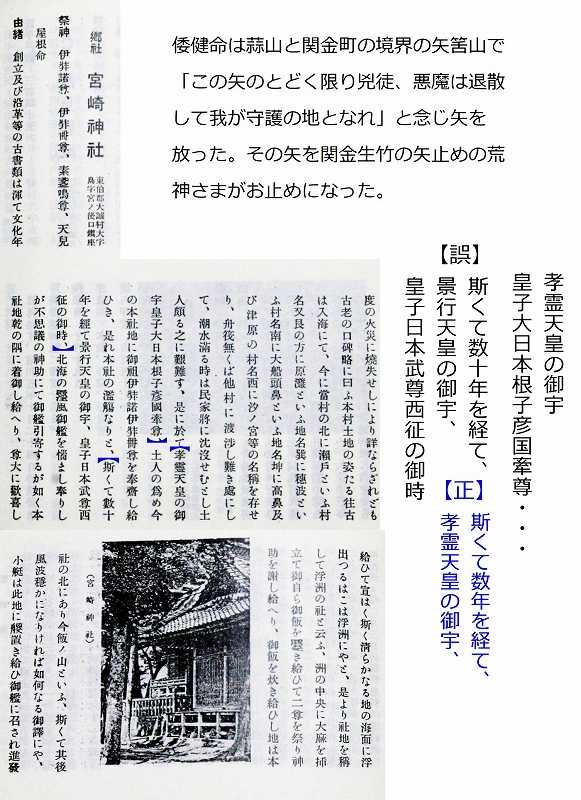 倭健命は蒜山と関金町の境界の矢筈山で
「この矢のとどく限り兇徒、悪魔は退散
して我が守護の地となれ」と念じ矢を
放った。その矢を関金生竹の矢止めの荒
神さまがお止めになった。
郷社 宮崎神社
東伯郡大誠村大字
島字宮ノ後口鎮座
祭神 伊弉諾尊、伊弉冊尊、素盞嗚尊、天兒
屋根命
由緒 創立及び沿革等の古書類は渾て文化年
孝霊天皇の御宇
皇子大日本根子彦国牽尊・・・
【誤】
斯くて数十年を経て、
景行天皇の御宇、
皇子日本武尊西征の御時
【正】
斯くて数年を経て、
孝霊天皇の御宇、
度の火災に燒失せしにより詳ならざれども
古老の口碑略に曰ふ本村土地の姿たる往古
は入海にて、今に當村の北に瀬戸といふ村
名又艮の方に原灘といふ地名巽に穂波とい
ふ村名南に大船頭鼻といふ地名坤に高鼻及
び津原の村名西に汐ノ宮等の名稱を存せ
り、舟筏無くば他村に渡渉し難き處にし
て、潮水滿る時は民家將に沈沒せむとし土
人頗る之に艱難す、是に於て【孝靈天皇の御
宇皇子大日本根子彦國牽尊】土人の爲め今
の本社地に御祖伊弉諾伊弉冊尊を奉齋し給
ひき、是れ本社の濫觴なりと、【斯くて數十
年を經て景行天皇の御宇、皇子日本武尊西
征の御時、】北海の颶風御艦を惱まし奉りし
が不思議の神助にて御艦引寄するが如く本
社地乾の隅に着御し給へり、尊大に歡喜し
給ひて宣はく斯く清らかなる地の海面に浮
出つるはこは浮洲にやと、是より社地を稱
して浮洲の社と云ふ、洲の中央に大麻を挿
立て御自ら御飯を爨き給ひて二尊を祭り神
助を謝し給へり、御飯を炊き給ひし地は本
(宮崎神社)
社の北にあり今飯ノ山といふ、斯くて其後
風波穩かになりければ如何なる御譯にや、
小艇は此地に置き給ひ御艦に召され進發